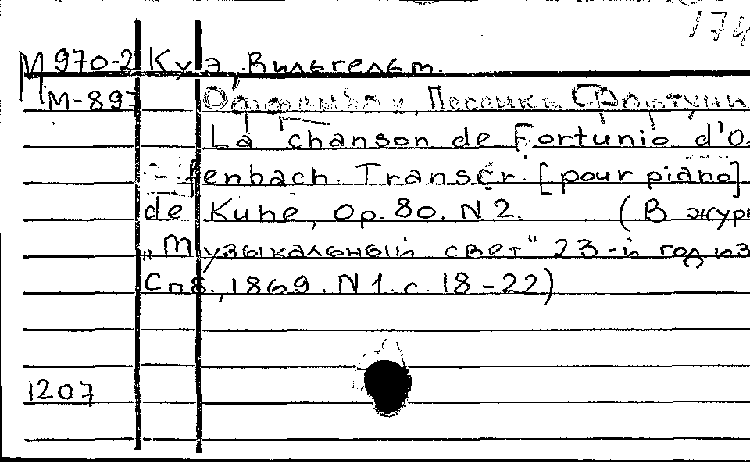 174
М 970-2 Куэ, Вильгельм.
М-897 Оффенбах, Песенка Фортунио
La chanson de Fortunio d'O
ffenbach. Transcr. [pour piano]
de Kuhe, Op. 80. N 2. (В жур
„Музыкальный свет" 23-й год из
Спб., 1869. N 1. с. 18-22)
1207